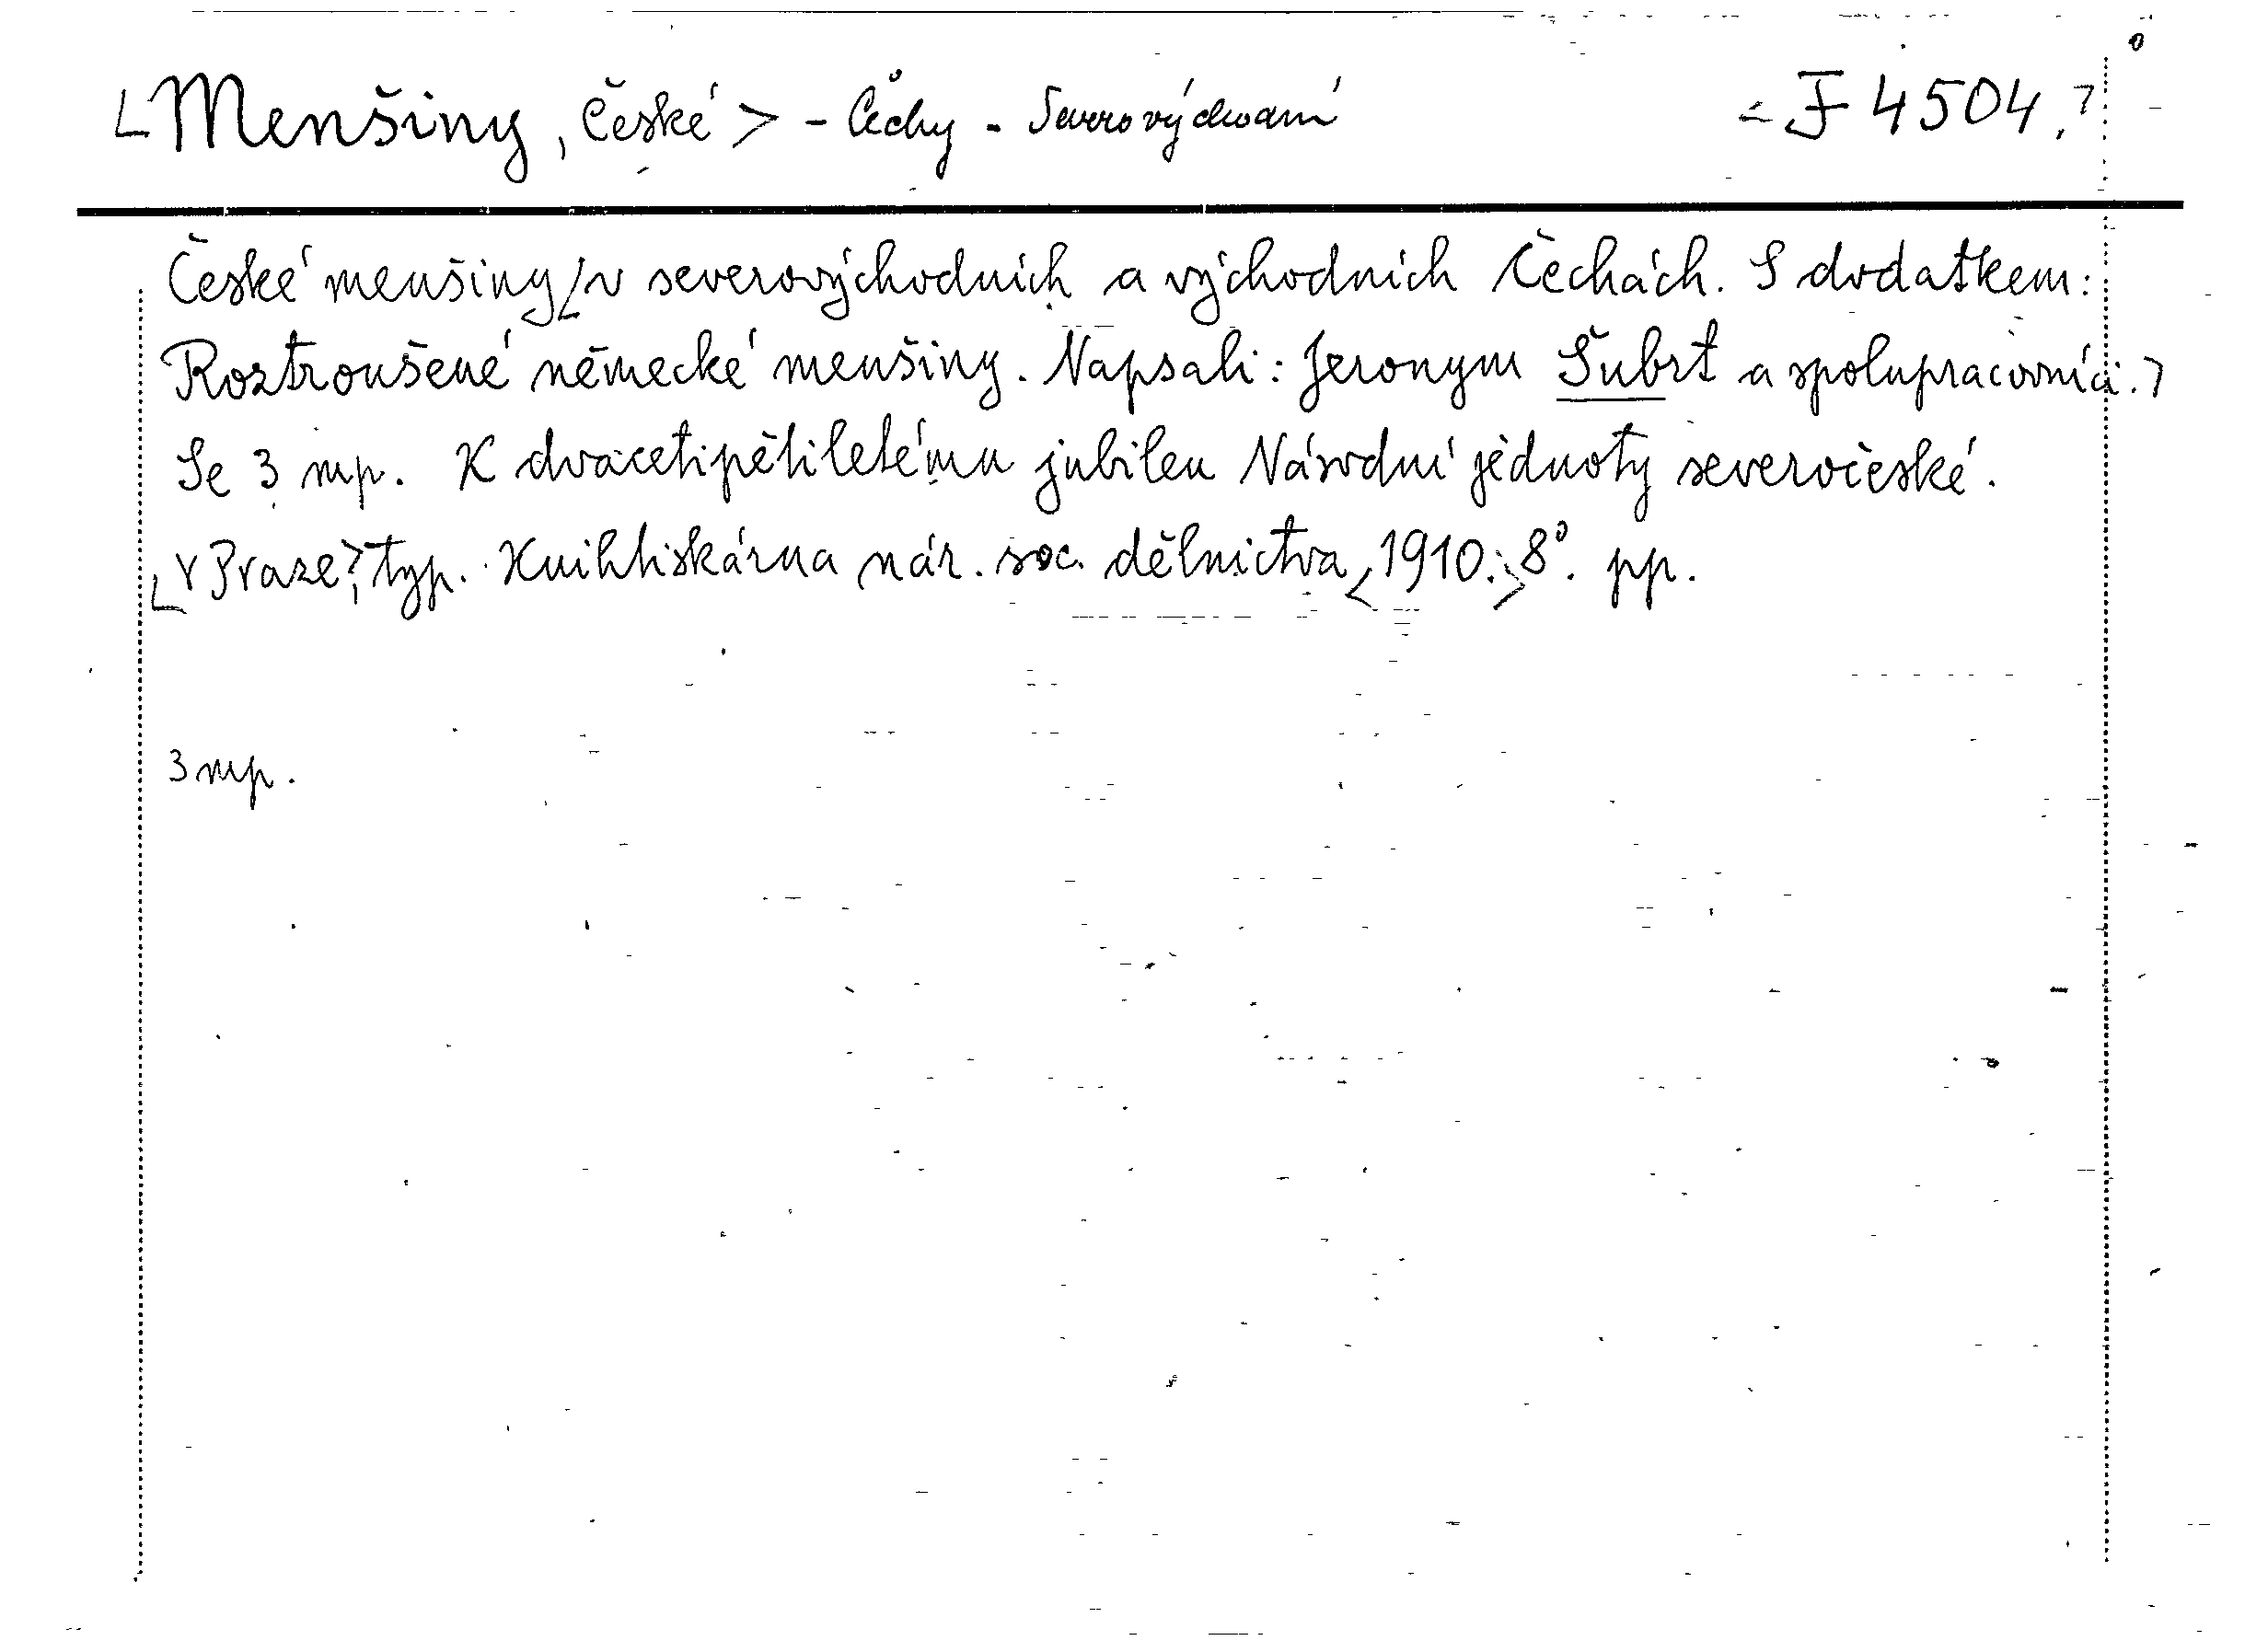 Menšiny, České > - Čechy - Severovýchodní = F 4504.
České menšiny v severovýchodních a východních Čechách. S dodatkem:
Roztroušené německé menšiny. Napsali: Jeronym Šubrt a spolupracovníci.
Se 3 mp. K dvacetipětiletému jubileu Národní jednoty severočeské.
V Praze, typ. Knihtiskárna nár. soc. dělnictva <1910.> 8°. pp.
3 mp.